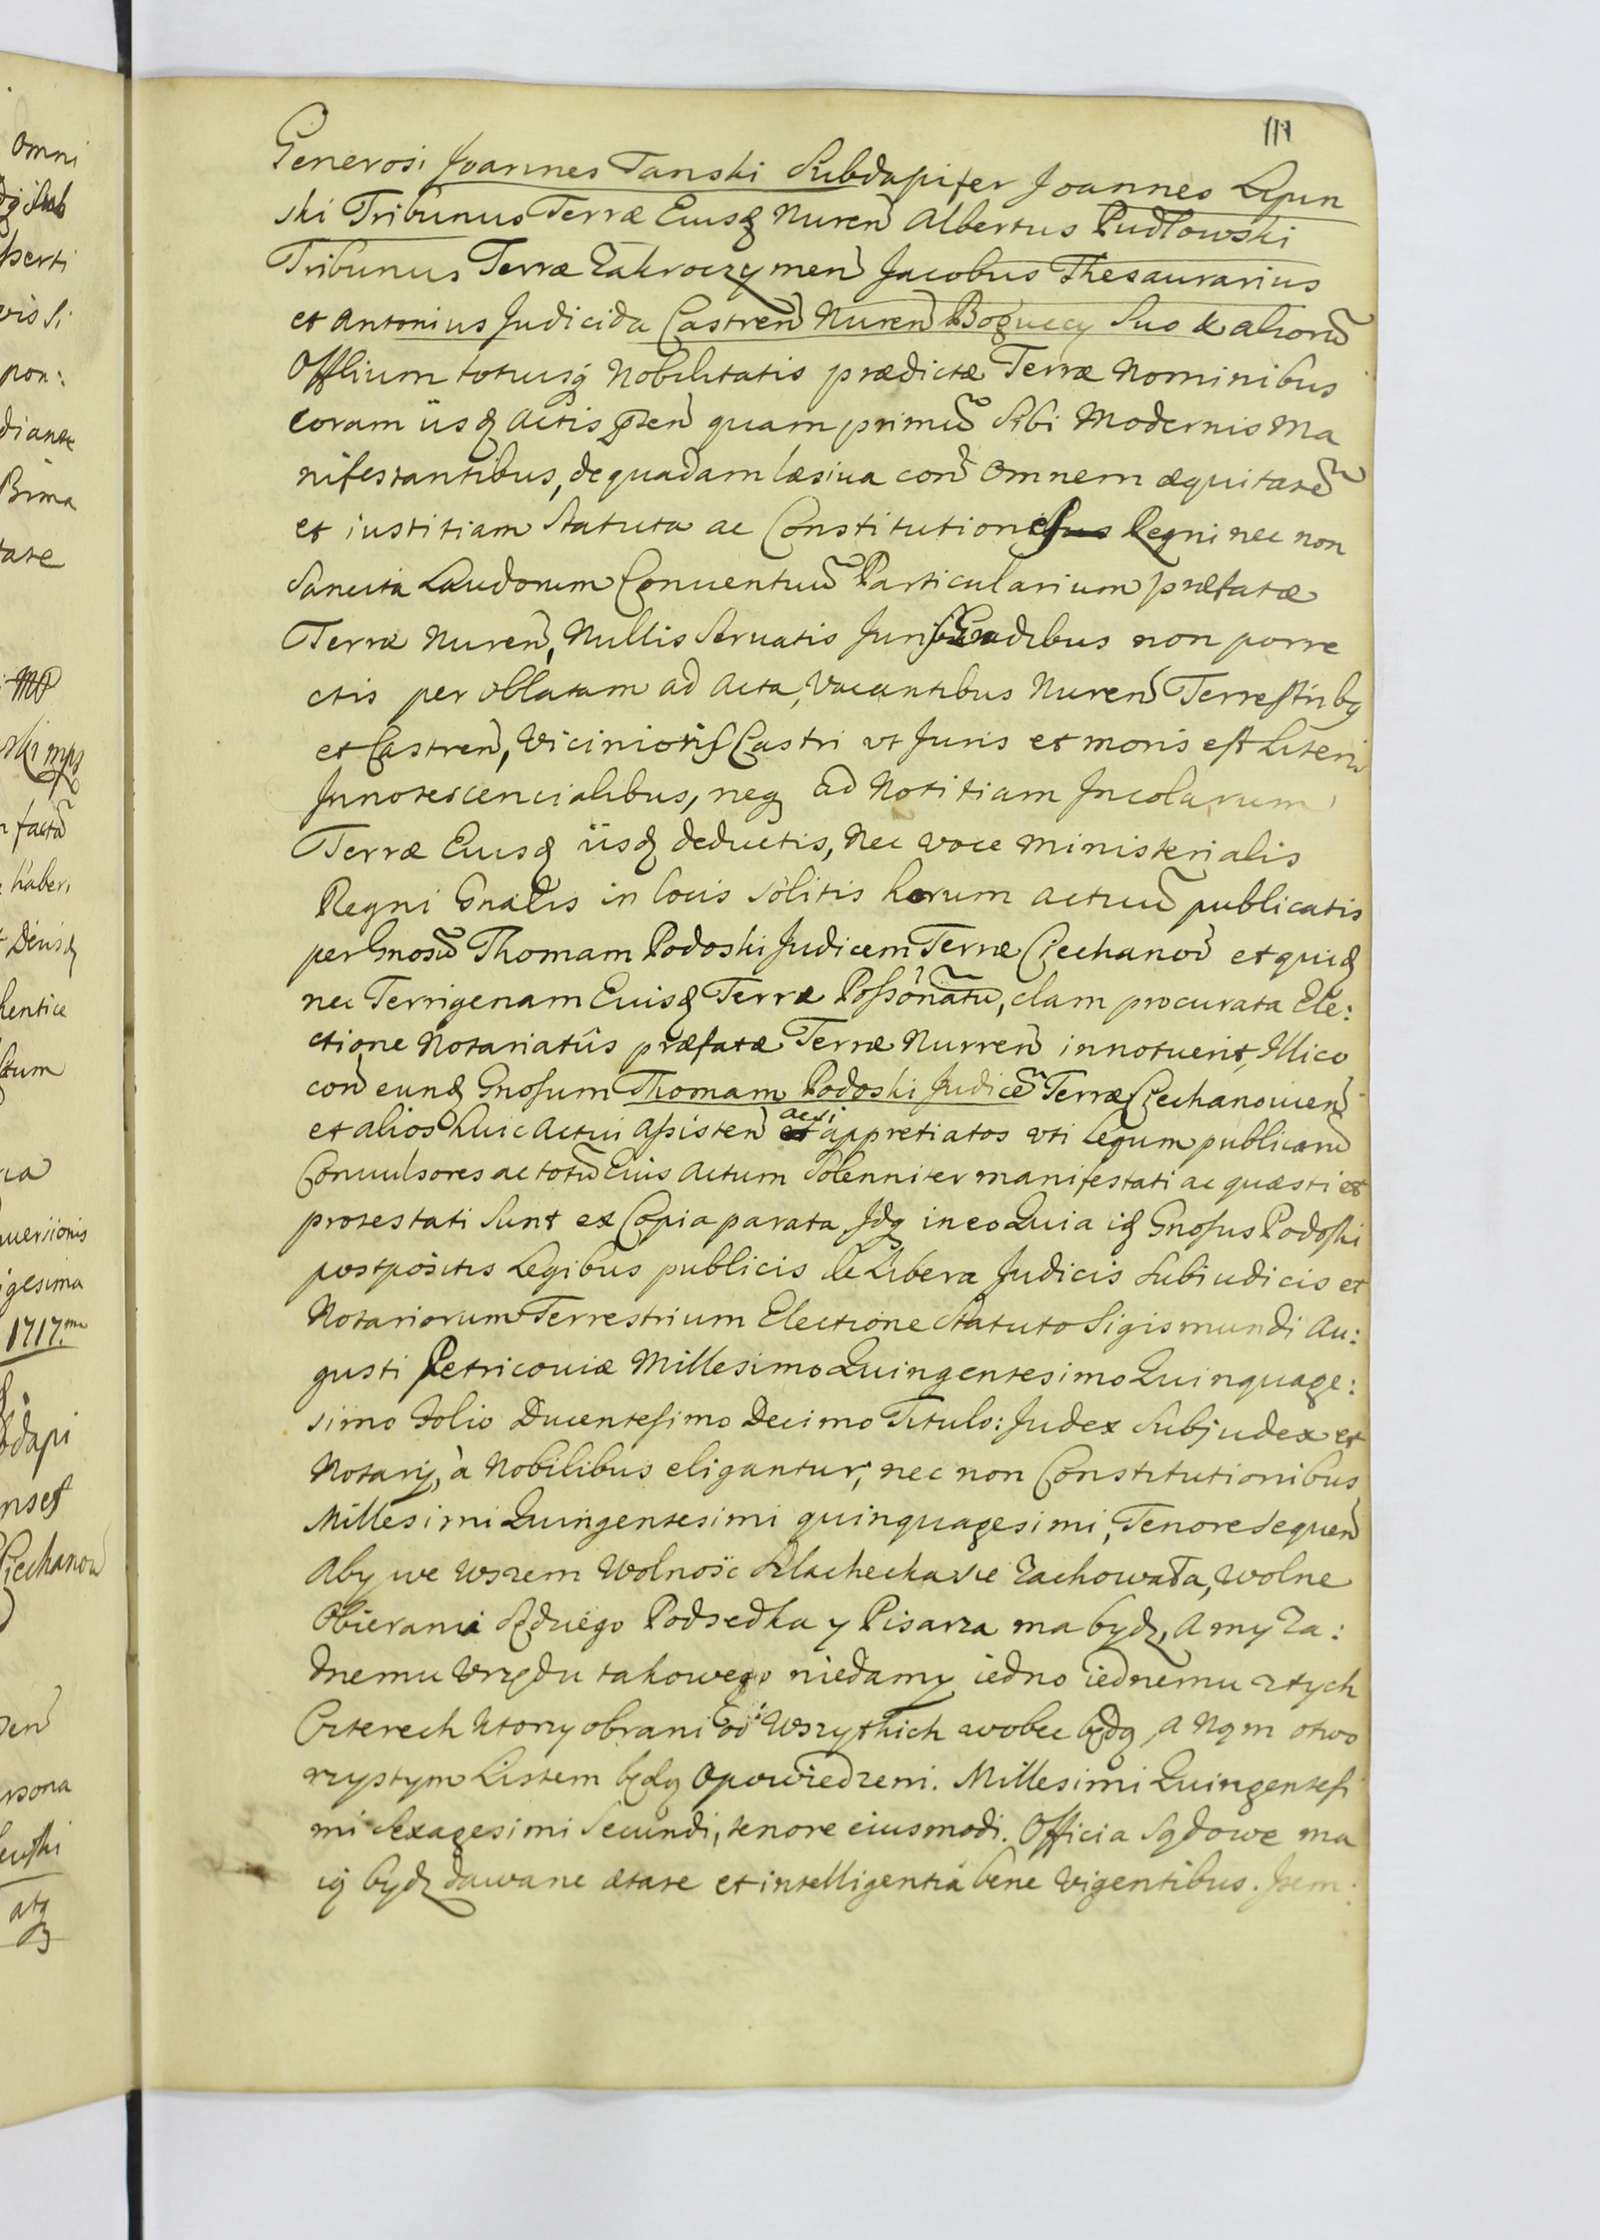 111
Generosi Joannes Tanski Subdapifer Joannes Lipin
ski Tribunus Terræ Eiusq Nuren Albertus Pudłowski
Tribunus Terræ Zakroczymen Jacobus Thesaurarius
et Antonius Judicida Castren Nuren Boguccy Suo & alioru
Offlium totiusq Nobilitatis prædictæ Terræ Nominibus
coram iisq Actis pñen quam primu Sibi Modernis Ma
nifestantibus, de quadam læsiua con Omnem æquitate
et iustitiam Statuta ac Constitutiones Regni nec non
Sancita Laudorum Conuentuu Particularium præfatæ
Terræ Nuren, Nullis Seruatis Juris Gradibus non porre
ctis per oblatam ad Acta, Vacantibus Nuren Terrestribq
et Castren, Vicinioris Castri vt Juris et moris est Literis
Innotescencialibus, neq ad Notitiam Incolarum
Terræ Eiusq iisq deductis, Nec voce Ministerialis
Regni Gnalis in locis solitis horum actuu publicatis
per Gnosu Thomam Podoski Judicem Terræ Ciechanou et quidq
nec Terrigenam Eiusq Terræ Possonatu, clam procurata Ele:
ctione Notariatus præfatæ Terræ Nurren innotuerit, Illico
con eunq Gnosum Thomam Podoski Judice Terræ Ciechanouien
et alios huic Actui Assisten acsi appretiatos vti Legum publicaru
Conuulsores ac totu Eius Actum Solenniter manifestati ac quæsti et
protestati Sunt ex Copia parata Idq in eo Quia iq Gnosus Podoski
postpositis Legibus publicis de Libera Judicis Subiudicis et
Notariorum Terrestrium Electione Statuto Sigismundi Au:
gusti Petricouiæ Millesimo Quingentesimo Quinquage:
simo Folio Ducentesimo Decimo Titulo: Judex Subjudex et
Notarij, à Nobilibus eligantur, nec non Constitutionibus
Millesimi Quingentesimi quinquagesimi, Tenore sequen
Aby we wszem Wolnośc Szlachecka sie Zachowała, wolne
Obierani Sędziego Podsedka y Pisarza ma bydz, a my Ża:
dnemu Vrzędu takowego niedamy iedno iednemu z tych
Czterech ktorzy obrani od Wszytkich wobec będą, a Nąm otwo
rzystym Listem będą Opowiedzeni. Millesimi Quingentesi
mi Sexagesimi Secundi, tenore eiusmodi. Officia Sądowe ma
ią bydz dawane ætate et intelligentiâ bene Vigentibus. Item: